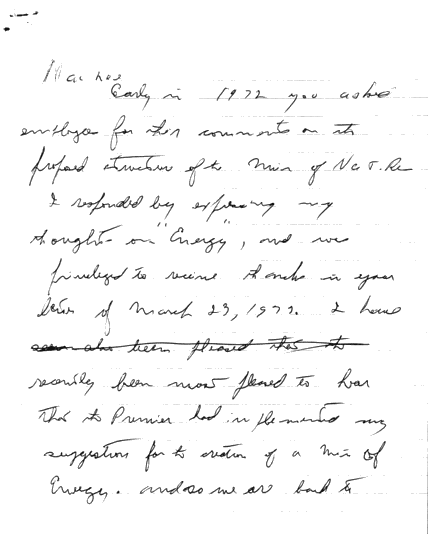 Early in 1972 you asked
employees for their comments on the
proposed structure of the Min of Nat. Re
I responded by expressing my
thoughts on "Energy", and was
privileged to receive thanks in your
letter of March 23, 1972. I have
been pleased that the
recently been most pleased to hear
that the Premier had implemented my
suggestion for the creation of a Min of
Energy. and so we are back to